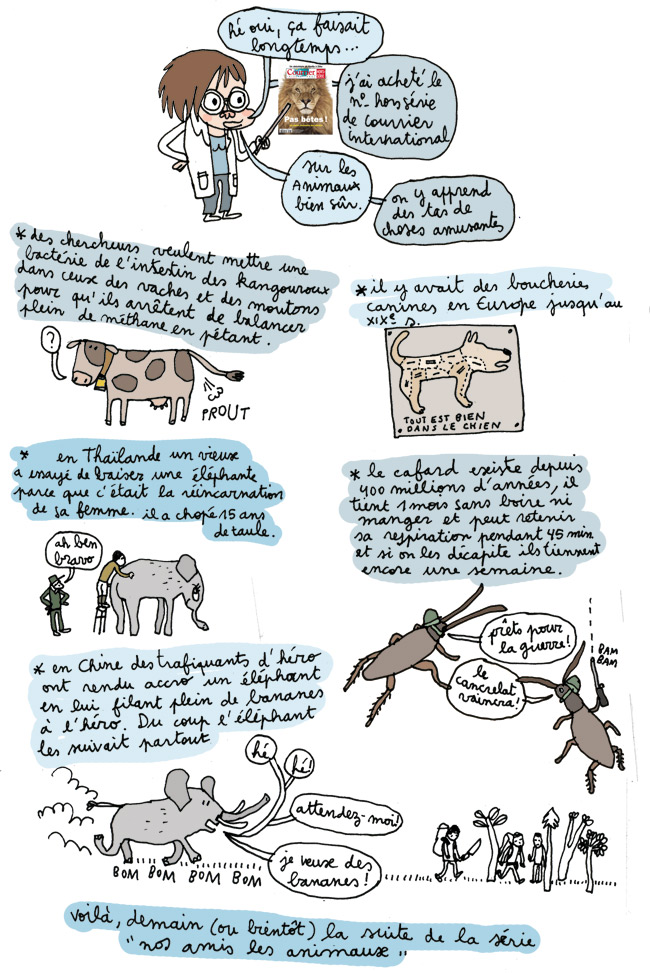 hé oui, ça faisait
longtemps...
Courrier
Pas bêtes !
j'ai acheté le
n° hors série
de courrier
International
sur les
Animaux
bien sûr.
on y apprend
des tas de
choses amusantes
* des chercheurs veulent mettre une
bactérie de l'intestin des kangouroux
dans ceux des vaches et des moutons
pour qu'ils arrêtent de balancer
plein de méthane en pétant.
?
PROUT
* il y avait des boucheries
canines en Europe jusqu'au
XIXe s.
TOUT EST BIEN
DANS LE CHIEN
* en Thaïlande un vieux
a essayé de baiser une éléphante
parce que c'était la réincarnation
de sa femme. il a chopé 15 ans
de taule.
ah ben
bravo
* le cafard existe depuis
400 millions d'années, il
tient 1 mois sans boire ni
manger et peut retenir
sa respiration pendant 45 min.
et si on les décapite ils tiennent
encore une semaine.
prêts pour
la guerre!
le
cancrelat
vaincra!
PAM
BAM
* en Chine des trafiquants d'héro
ont rendu accro un éléphant
en lui filant plein de bananes
à l'héro. Du coup l'éléphant
les suivait partout
hé
hé!
attendez-moi!
je veux des
bananes!
BOM BOM BOM BOM
voilà, demain (ou bientôt) la suite de la série
"nos amis les animaux"